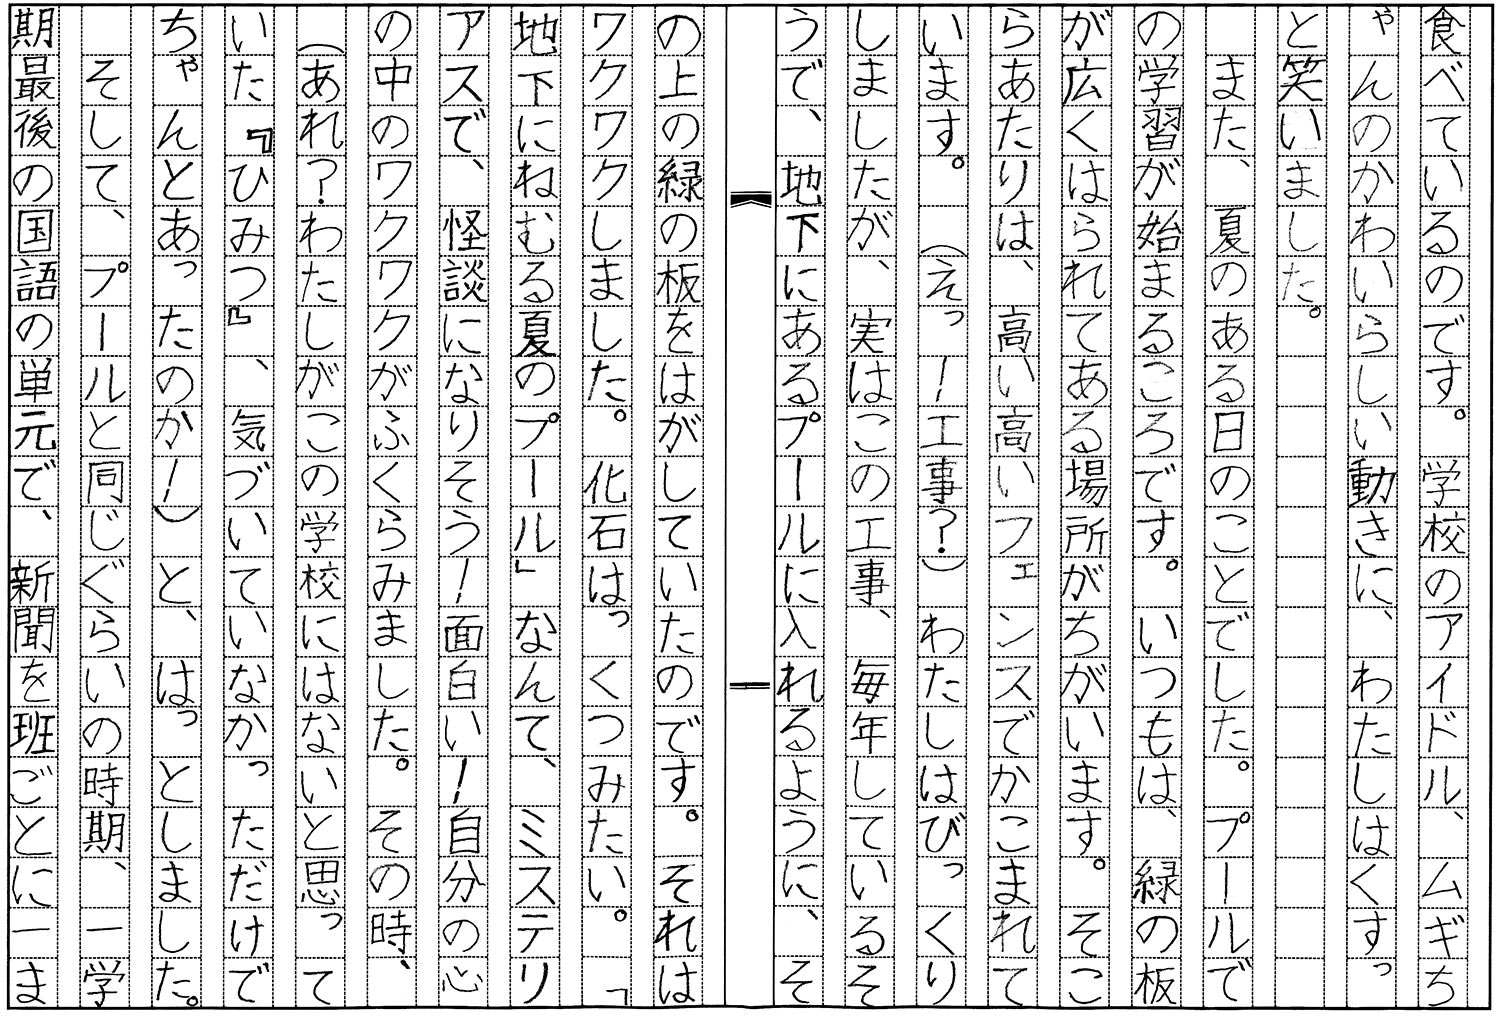 食べているのです。学校のアイドル、ムギち
ゃんのかわいらしい動きに、わたしはくすっ
と笑いました。
また、夏のある日のことでした。プールで
の学習が始まるころです。いつもは、緑の板
が広くはられてある場所がちがいます。そこ
らあたりは、高い高いフェンスでかこまれて
います。(えっ!工事?)わたしはびっくり
しましたが、実はこの工事、毎年しているそ
うで、地下にあるプールに入れるように、そ
の上の緑の板をはがしていたのです。それは
ワクワクしました。化石はっくつみたい。「
地下にねむる夏のプール」なんて、ミステリ
アスで、怪談になりそう!面白い!自分の心
の中のワクワクがふくらみました。その時、
(あれ?わたしがこの学校にはないと思って
いた『ひみつ』、気づいていなかっただけで
ちゃんとあったのか!)と、はっとしました。
そして、プールと同じぐらいの時期、一学
期最後の国語の単元で、新聞を班ごとに一ま